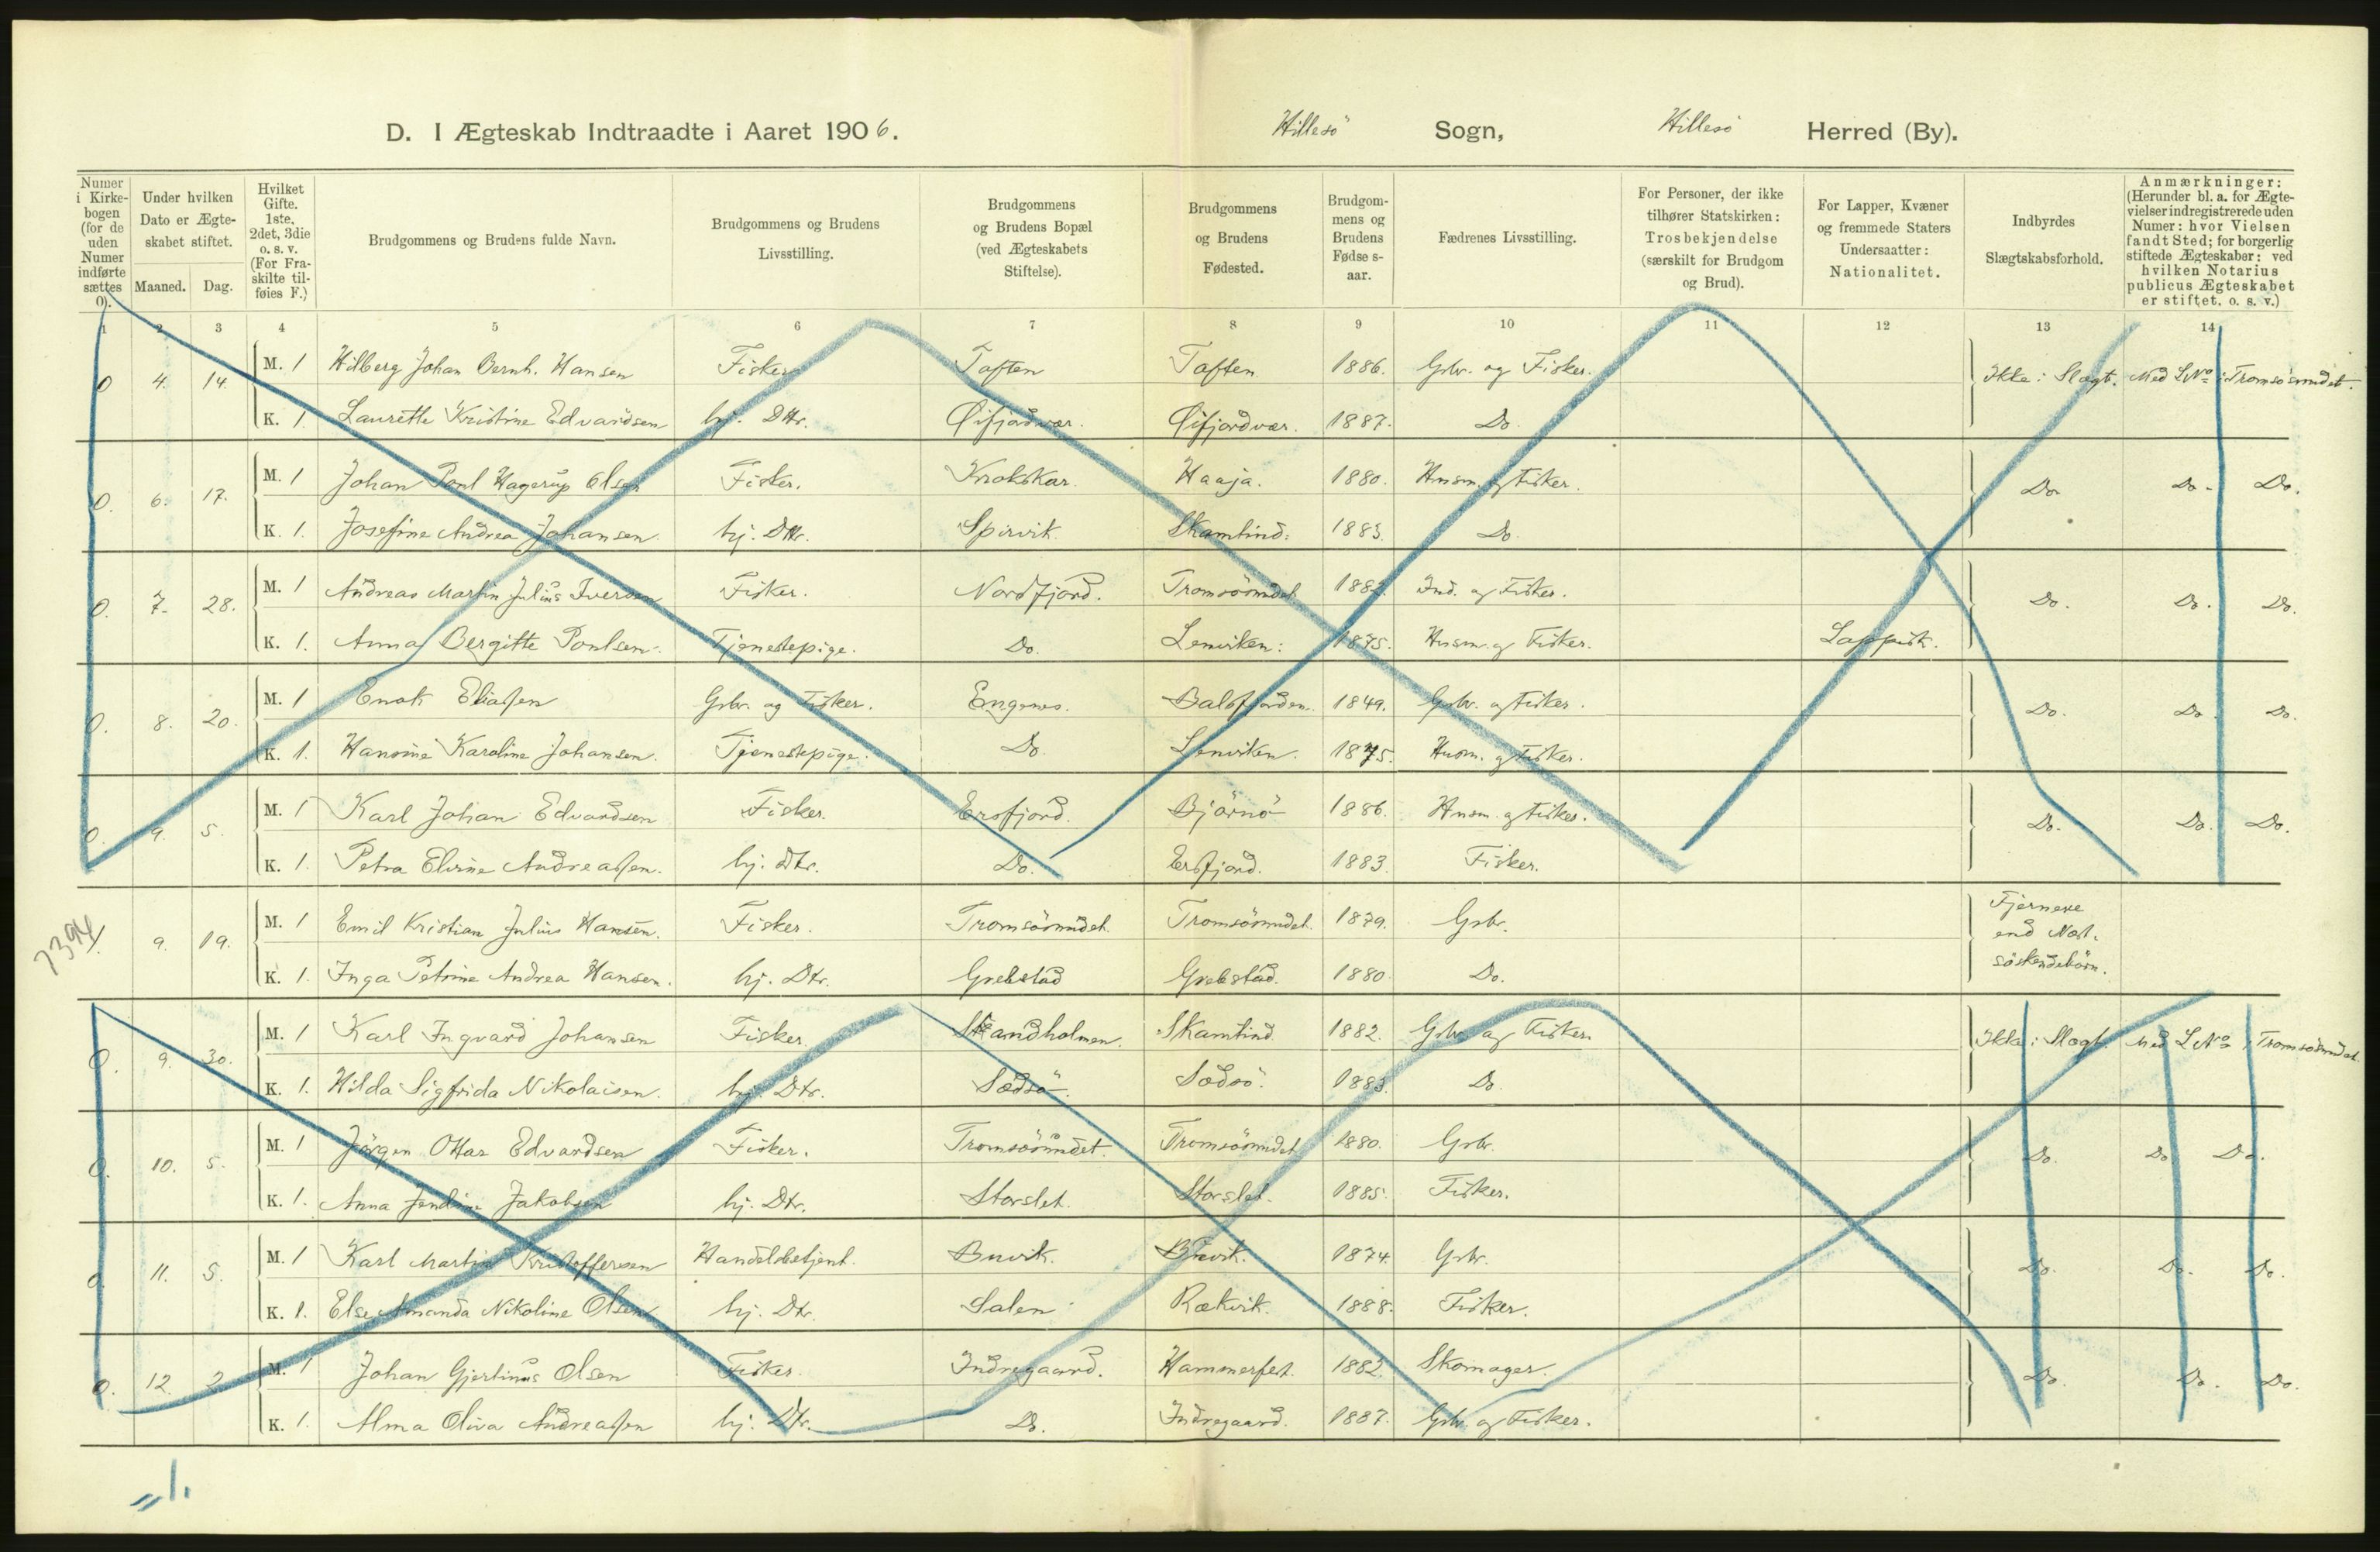 D. I Ægteskab Indtraadte i Aaret 1906. Hillesö Sogn, Hillesö Herred (By).
Numer i Kirke-bogen (for de uden Numer indførte sættes 0).
Under hvilken Dato er Ægte-skabet stiftet.
Maaned. Dag.
Hvilket Gifte. 1ste, 2det, 3die o. s. v. (For Fra-skilte til-føies F.)
Brudgommens og Brudens fulde Navn.
Brudgommens og Brudens Livsstilling.
Brudgommens og Brudens Bopæl (ved Ægteskabets Stiftelse).
Brudgommens og Brudens Fødested.
Brudgom-mens og Brudens Fødse s-aar.
Fædrenes Livsstilling.
For Personer, der ikke tilhører Statskirken: Trosbekjendelse (særskilt for Brudgom og Brud).
For Lapper, Kvæner og fremmede Staters Undersaatter: Nationalitet.
Indbyrdes Slægtskabsforhold.
Anmærkninger: (Herunder bl. a. for Ægte-vielser indregistrerede uden Numer: hvor Vielsen fandt Sted; for borgerlig stiftede Ægteskaber: ved hvilken Notarius publicus Ægteskabet er stiftet, o. s. v.)
1 2 3 4 5 6 7 8 9 10 11 12 13 14
0 4. 14. M. 1 Hilberg Johan Bernh. Hansen Fisker Toften Toften 1886. Gbr. og Fisker. Ikke i Slægt. Med LNo i Tromsösundet.
K. 1. Laurette Kristine Edvardsen hj. Dttr. Öifjordvær. Öifjordvær. 1887. Do.
0. 6. 17. M. 1 Johan Paul Hagerup Olsen Fisker. Krokskar. Haaja. 1880. Husm. og Fisker. Do. Do. Do.
K. 1. Josefine Andrea Johansen. hj. Dttr. Spirvik. Skamtind. 1883. Do.
0. 7. 28. M. 1 Andreas Martin Julius Iversen Fisker. Nordfjord. Tromsösundet 1882. Ind. og Fisker. Do. Do. Do.
K. 1. Anna Bergitte Poulsen. Tjenestepige. Do. Lenviken. 1875. Husm. og Fisker. Lappisk.
0. 8. 20. M. 1 Enok Eliassen Gbr. og Fisker. Engenes. Balsfjorden. 1849. Gbr. og Fisker. Do. Do. Do.
K. 1. Hansine Karoline Johansen. Tjenestepige. Do. Lenviken. 1875. Husm. og Fisker.
0. 9. 5. M. 1 Karl Johan Edvardsen Fisker. Ersfjord. Bjørnö 1886. Husm. og Fisker. Do. Do. Do.
K. 1. Petra Elvine Andreassen. hj. Dtr. Do. Ersfjord. 1883. Fisker.
7394
1. 9. 19. M. 1 Emil Kristian Julius Hansen. Fisker. Tromsösundet. Tromsösundet. 1879. Gbr. Fjernere end Næst-söskendebörn.
K. 1. Inga Petrine Andrea Hansen. hj. Dtr. Grebstad Grebstad. 1880 Do.
0. 9. 30. M. 1 Karl Ingvard Johansen Fisker Skandholmen. Skamtind 1882. Gbr. og Fisker. Ikke i Slægt. Med LNo i Tromsösundet.
K. 1. Hilda Sigfrida Nikolaisen. hj. Dtr. Sødsö. Sødsö. 1883. Do.
0. 10. 5. M. 1 Jörgen Ottar Edvardsen Fisker. Tromsösundet. Tromsösundet 1880. Gbr. Do. Do Do.
K. 1. Anna Jendine Jakobsen hj. Dtr. Storslet. Storslet. 1885. Fisker.
0. 11. 5. M. 1 Karl Martin Kristoffersen Handelsbetjent. Buvik. Buvik. 1874. Gbr. Do. Do. Do.
K. 1. Else Amanda Nikoline Olsen hj. Dtr. Salen Rækvik. 1888. Fisker.
0. 12. 2 M. 1 Johan Gjertinus Olsen Fisker. Indregaard. Hammerfest. 1882 Skomager. Do. Do. Do.
K. 1. Alma Oliva Andreassen hj. Dtr. Do. Indregaard. 1887. Gbr. og Fisker.